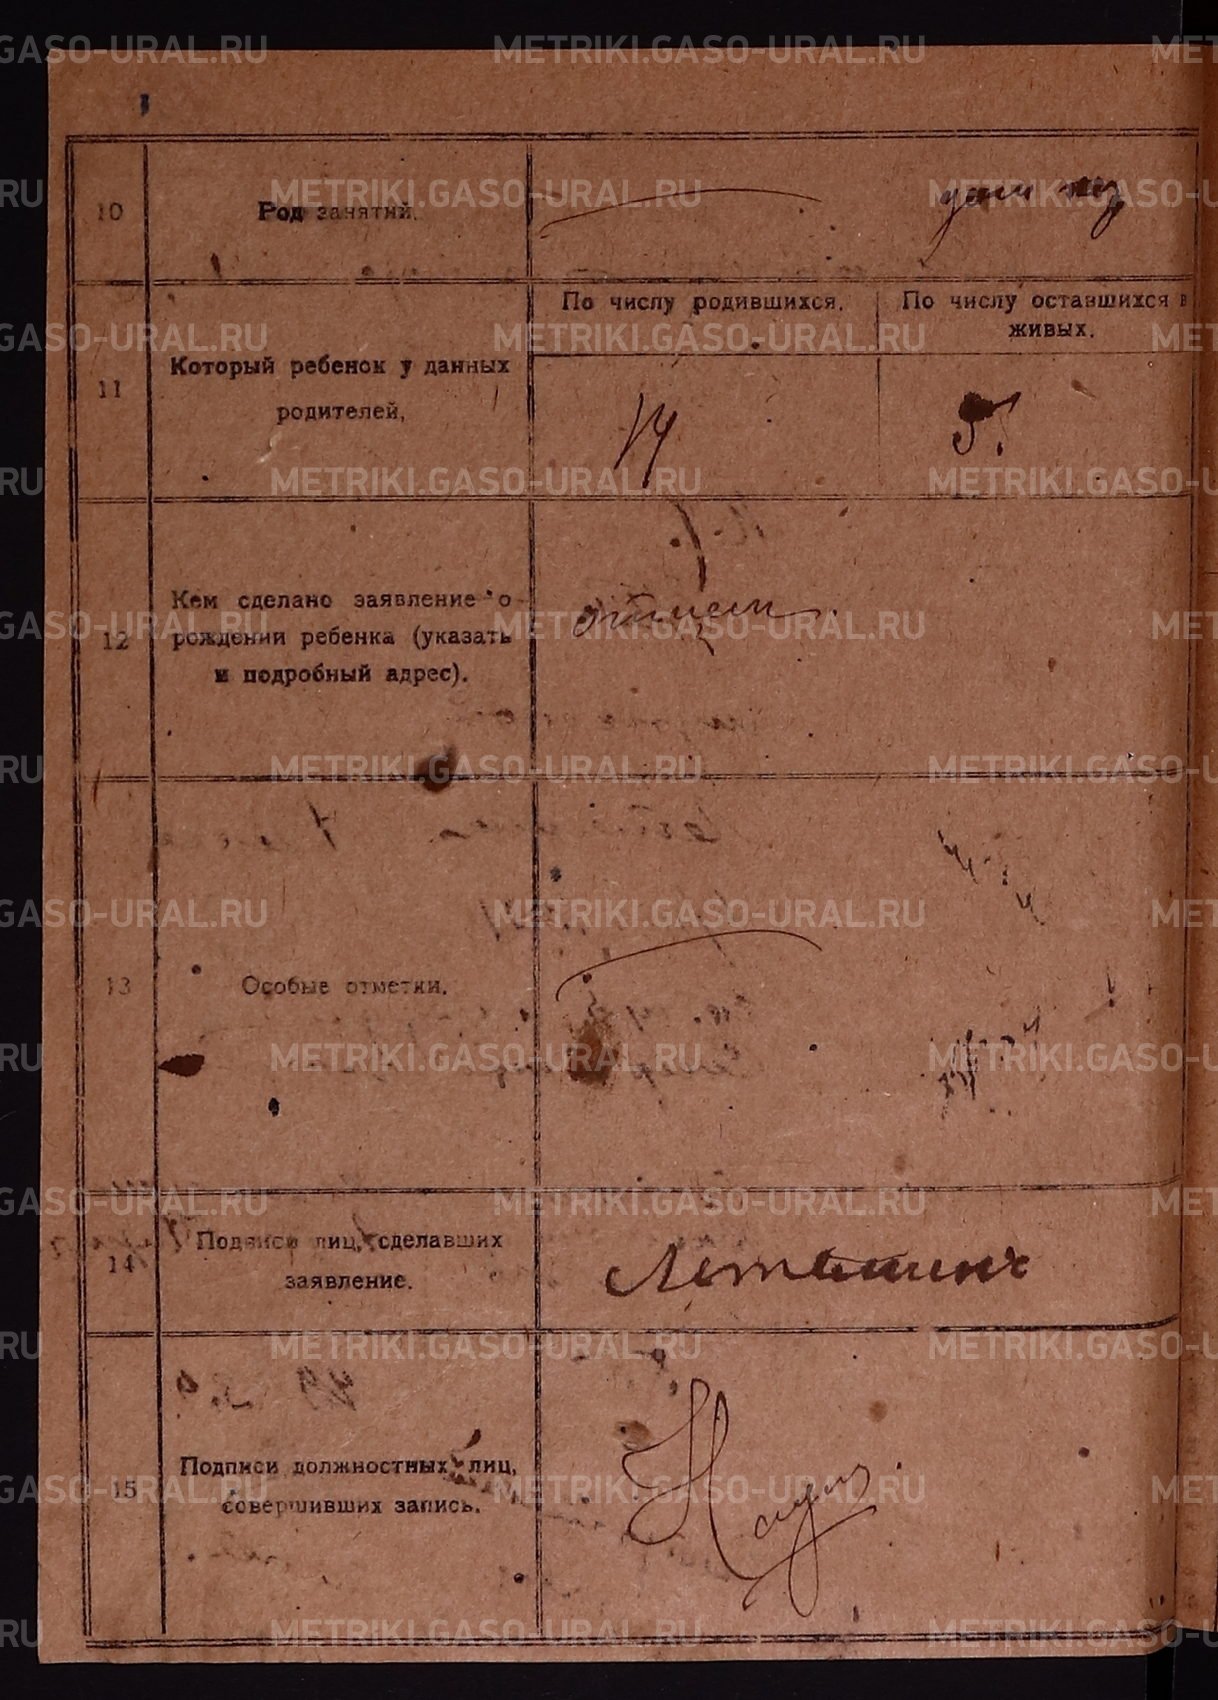 10
Род занятий.
11
Который ребенок у данных
родителей,
По числу родившихся.
По числу оставшихся в
живых.
14
5.
12
Кем сделано заявление о
рождении ребенка (указать
и подробный адрес).
отцем
13
Особые отметки.
14
Подписи лиц, сделавших
заявление.
15
Подписи должностных лиц,
совершивших запись.
METRIKI.GASO-URAL.RU